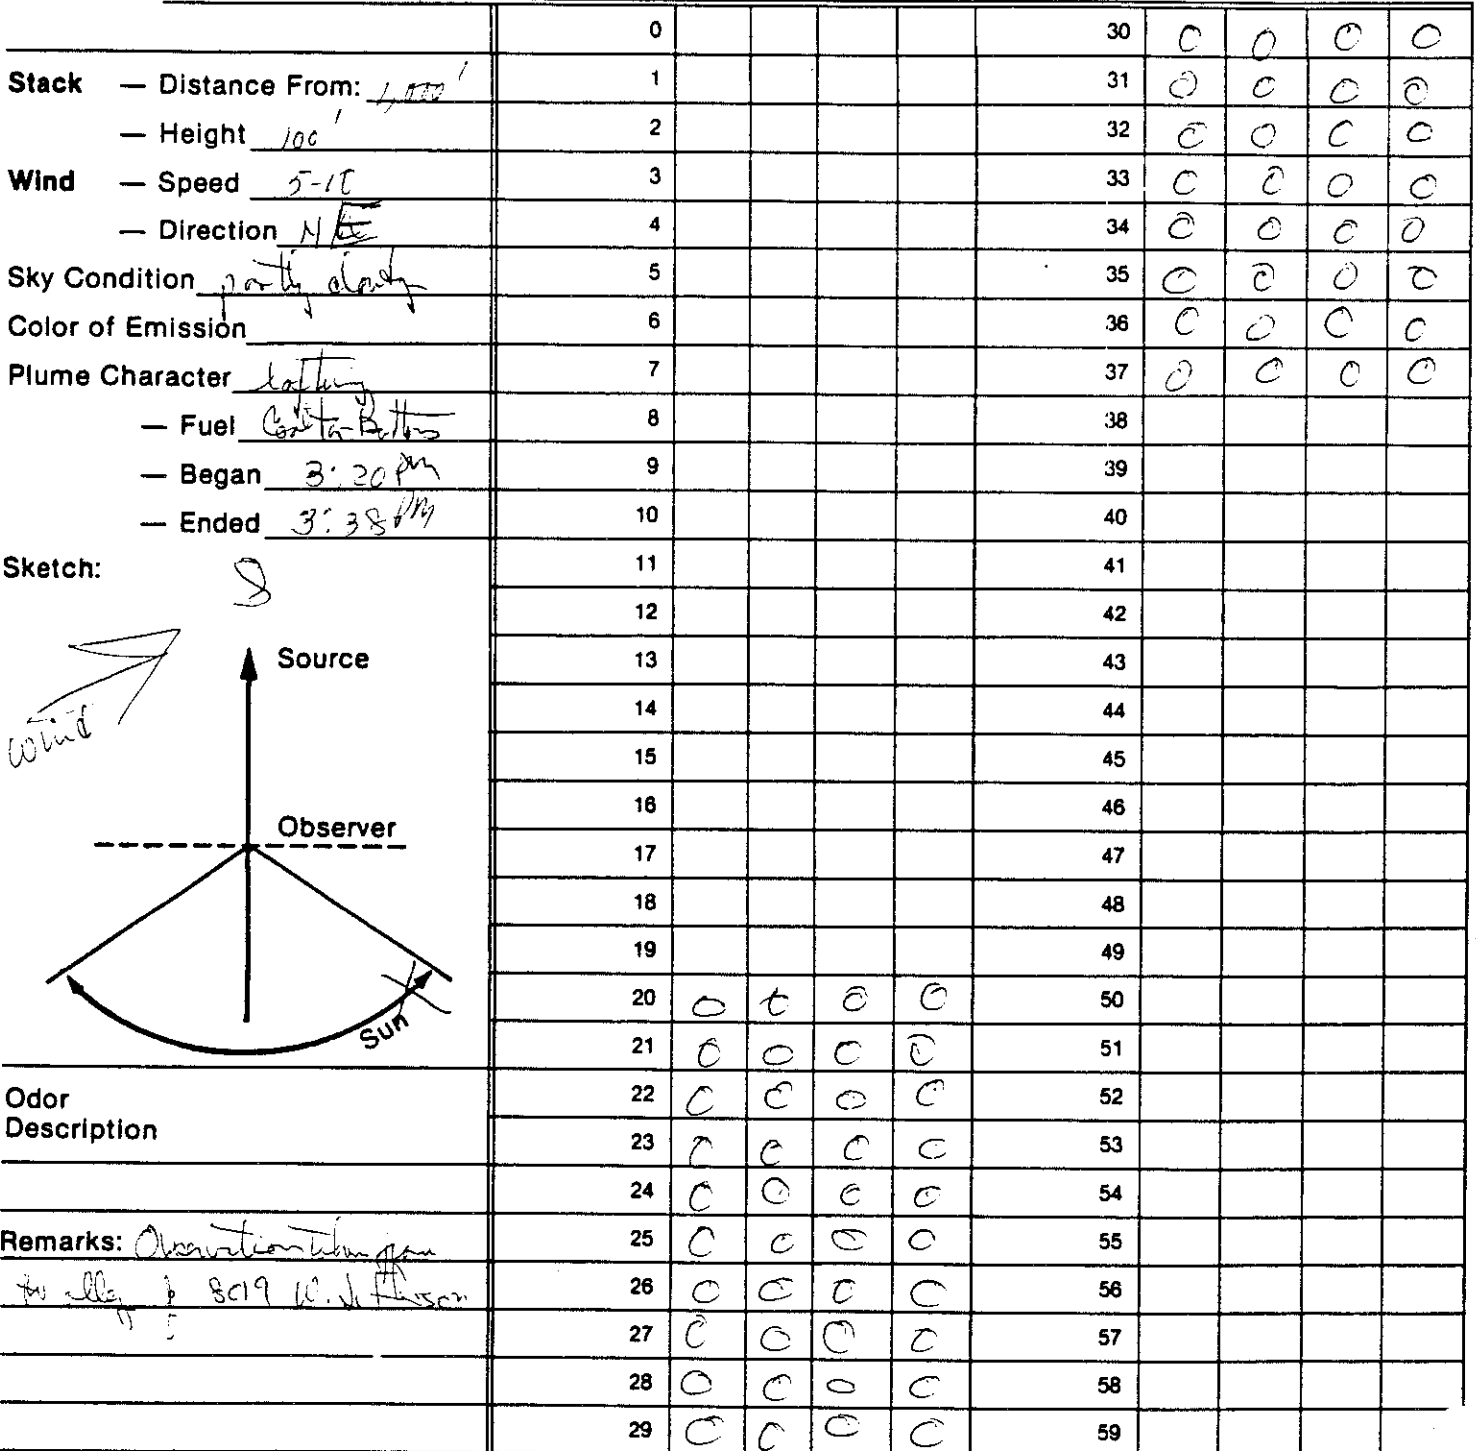 Stack — Distance From: 1,000'
— Height 100'
Wind — Speed 5-10
— Direction NE
Sky Condition partly cloudy
Color of Emission
Plume Character lofting
— Fuel
— Began 3:20 PM
— Ended 3:38 PM
Sketch:
wind
Source
Observer
Sun
Odor
Description
Remarks: Observation taken from
8019 W. Jefferson
0 30 0 0 0 0
1 31 0 0 0 0
2 32 0 0 0 0
3 33 0 0 0 0
4 34 0 0 0 0
5 35 0 0 0 0
6 36 0 0 0 0
7 37 0 0 0 0
8 38
9 39
10 40
11 41
12 42
13 43
14 44
15 45
16 46
17 47
18 48
19 49
20 0 0 0 0 50
21 0 0 0 0 51
22 0 0 0 0 52
23 0 0 0 0 53
24 0 0 0 0 54
25 0 0 0 0 55
26 0 0 0 0 56
27 0 0 0 0 57
28 0 0 0 0 58
29 0 0 0 0 59